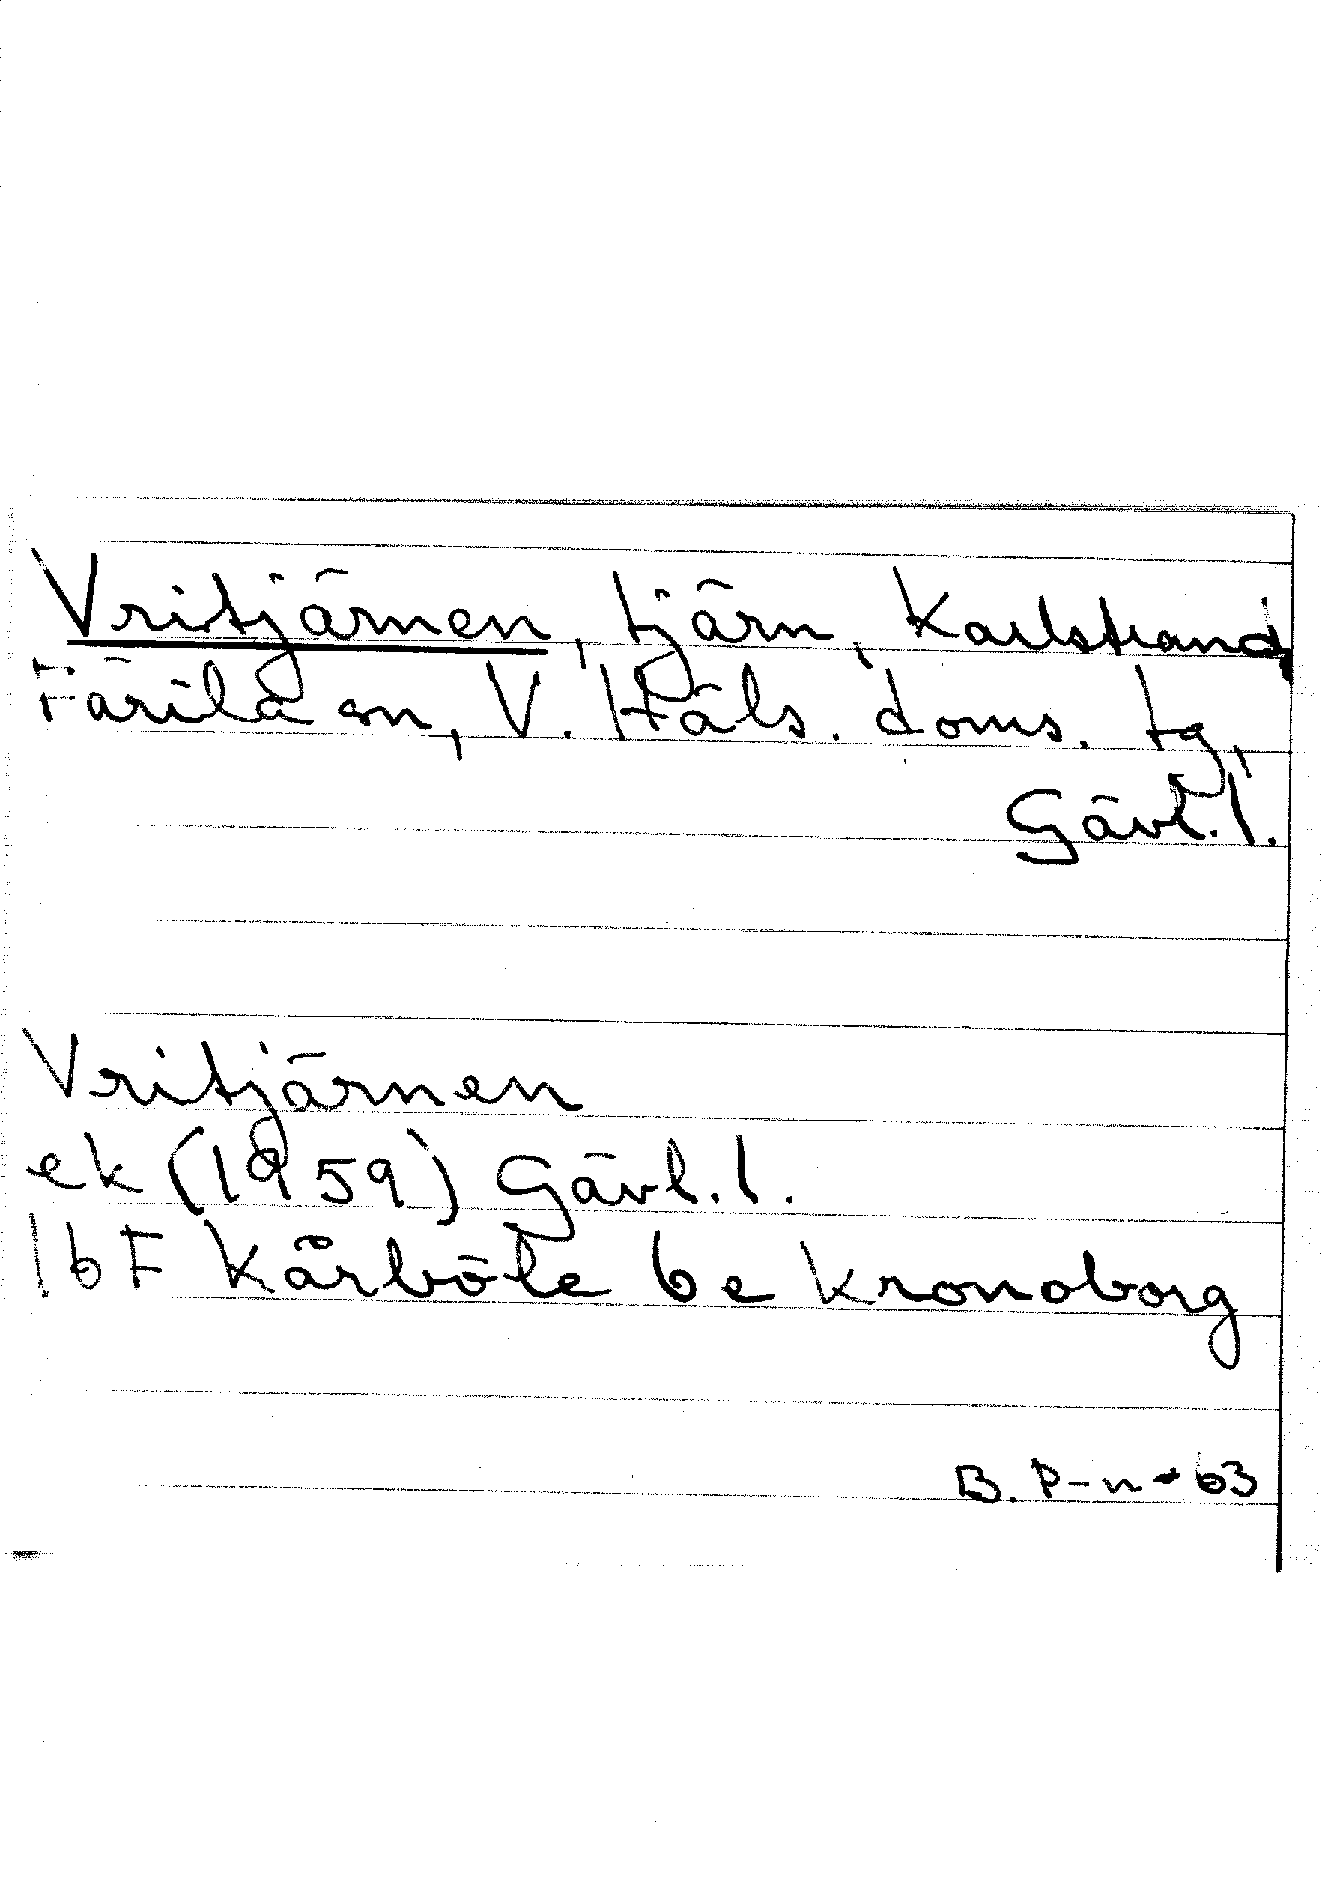 Vritjärnen, tjärn, Karlstrand,
Färila sn, V. Häls. doms. tg,
Gävl. l.
Vritjärnen
ek (1959) Gävl. l.
16 F Kårböle 6e Kronoborg
B. P-n -63